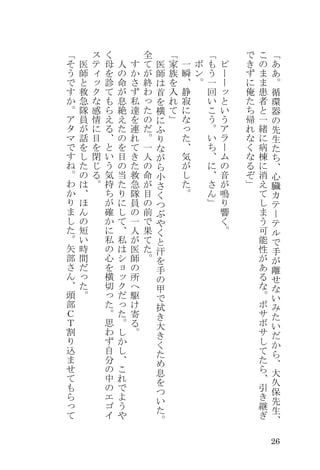 「ああ。循環器の先生たち、心臓カテーテルで手が離せないみたいだから、大久保先生、
このまま患者と一緒に病棟に消えてしまう可能性があるな。ボサボサしてたら、引き継ぎ
できずに俺たち帰れなくなるぞ」
ピーーッというアラームの音が鳴り響く。
「もう一回いこう。いち、に、さん」
ボン。
一瞬、静寂になった、気がした。
「家族を入れて」
医師は首を横にふりながら小さくつぶやくと汗を手の甲で拭き大きくため息をついた。
全てが終わったのだ。一人の命が目の前で果てた。
すかさず私達を連れてきた救急隊員の一人が医師の所へ駆け寄る。
人の命が息絶えたのを目の当たりにして、私はショックだった。しかし、これでようや
く母を診てもらえる、という気持ちが確かに私の心を横切った。思わず自分の中のエゴイ
スティックな感情に目を閉じる。
医師と救急隊員が話をしたのは、ほんの短い時間だった。
「そうですか。アタマですね。わかりました。矢部さん、頭部CT割り込ませてもらって
26